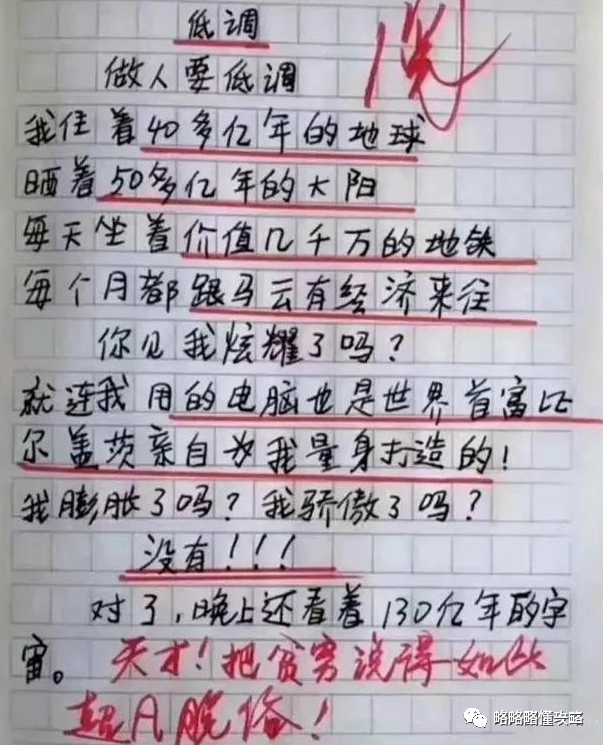 低调
做人要低调
我住着40多亿年的地球
晒着50多亿年的太阳
每天坐着价值几千万的地铁
每个月都跟马云有经济来往
你见我炫耀了吗？
就连我用的电脑也是世界首富比
尔盖茨亲自为我量身打造的！
我膨胀了吗？我骄傲了吗？
没有！！！
对了，晚上还看着130亿年的宇
宙。天才！把贫穷说得如此
超凡脱俗！
略略略懂攻略